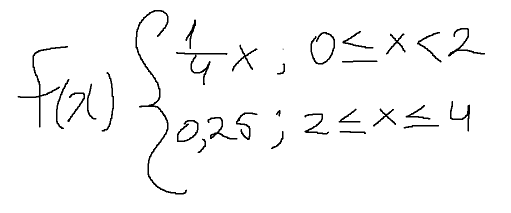 f(x) { 1/4 x ; 0 ≤ x < 2
0,25 ; 2 ≤ x ≤ 4